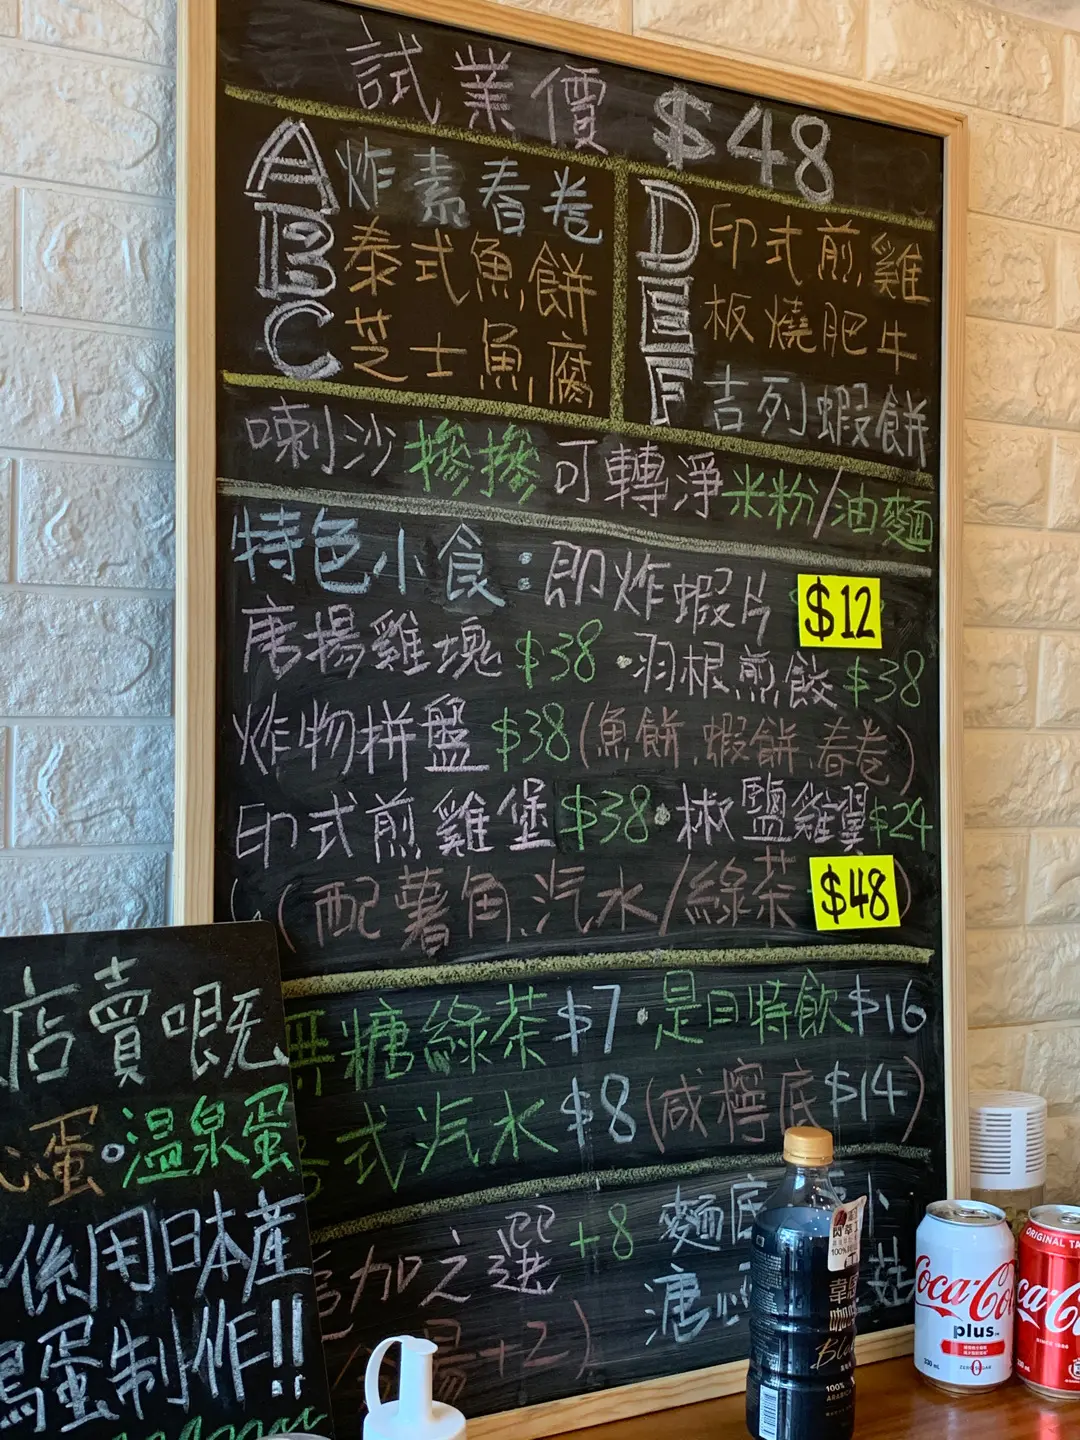 試業價 $48
A 炸素春卷
B 泰式魚餅
C 芝士魚腐
D 印式煎雞
E 板燒肥牛
F 吉列蝦餅
喇沙 摻摻 可轉淨 米粉/油麵
特色小食：即炸蝦片 $12
唐揚雞塊 $38 · 羽根煎餃 $38
炸物拼盤 $38 (魚餅.蝦餅.春卷)
印式煎雞堡 $38 · 椒鹽雞翼 $24
(配薯角.汽水/綠茶 $48
無糖綠茶 $7 · 是日特飲 $16
式汽水 $8 (咸檸底 $14)
加之選 +8 麵底
湯+2)
店賣嘅
心蛋。温泉蛋
係用日本產
蛋制作!!
Coca-Cola
plus™
330 mL
ZERO SUGAR
ORIGINAL TA
100%